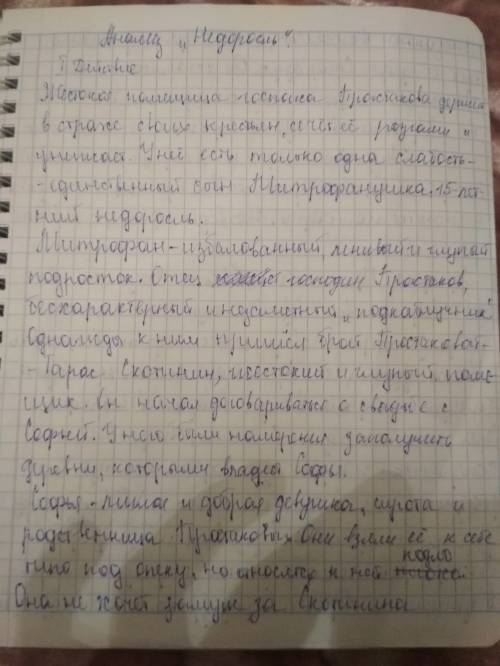 Анализ „Недоросль".
I Действие
Жестокая помещица госпожа Простакова держит
в страхе своих крестьян, сечёт её розгами и
унижает. У неё есть только одна слабость-
-единственный сын Митрофанушка, 15-лет-
ний недоросль.
Митрофан-избалованный, ленивый и глупый
подросток. Отец господин Простаков,
бесхарактерный и незаметный „подкаблучник"
Однажды к ним пришёл брат Простаковой-
-Тарас Скотинин, жестокий и глупый поме-
щик. Он начал договариваться о свадьбе с
Софьей. У него были намерения заполучить
деревни, которыми владеет Софья.
Софья-милая и добрая девушка, сирота и
родственница Простаковых. Они взяли её к себе
типо под опеку, но относятся к ней подло
Она не хочет замуж за Скотинина